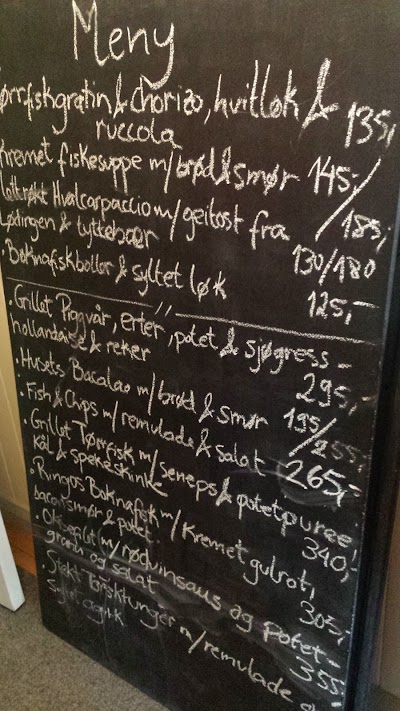 Meny
ørrfiskgratin & chorizo, hvitløk &
ruccola 135,
Kremet fiskesuppe m/brød & smør 145,-/
185,-
lettrøkt Hvalcarpaccio m/ geitost fra
Lødingen & tyttebær 130/180
· Boknafiskboller & syltet løk 125,-
- // -
· Grillet Piggvår, erter, potet & sjøgress-
hollandaise & reker 295,-
· Husets Bacalao m/brød & smør 195
/255
· Fish & Chips m/remulade & salat 265,-
· Grillet Tørrfisk m/ seneps & potetpuree
kål & spekeskinke 340,-
· Ringos Boknafisk m/ kremet gulrot,
baconsmør & potet 305,-
· Oksefilet m/ rødvinsaus og potet-
gratin og salat 355,-
Stekt Torsktunger m/ remulade
syltet agurk